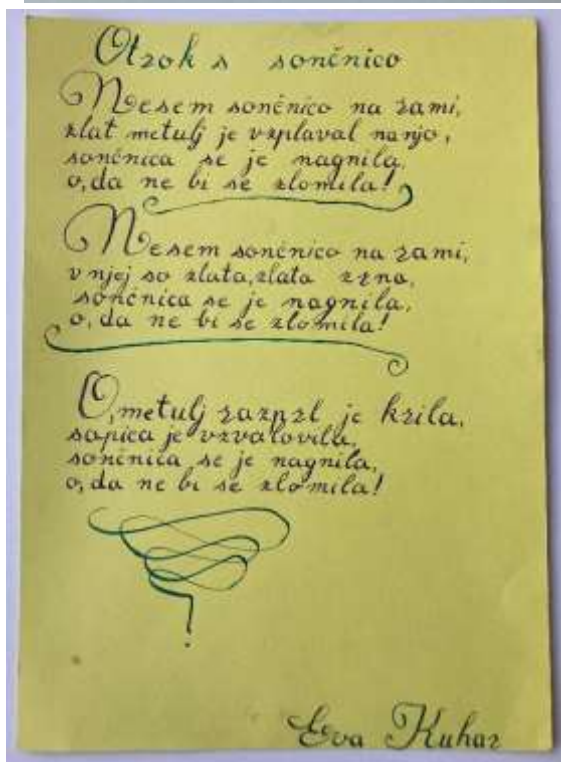 Otrok s sončnico
Nesem sončnico na rami,
zlat metulj je vzplaval nanjo,
sončnica se je nagnila,
o, da ne bi se zlomila!
Nesem sončnico na rami,
v njej so zlata, zlata zrna,
sončnica se je nagnila,
o, da ne bi se zlomila!
O, metulj razprl je krila,
sapica je vzvalovila,
sončnica se je nagnila,
o, da ne bi se zlomila!
Eva Kuhar